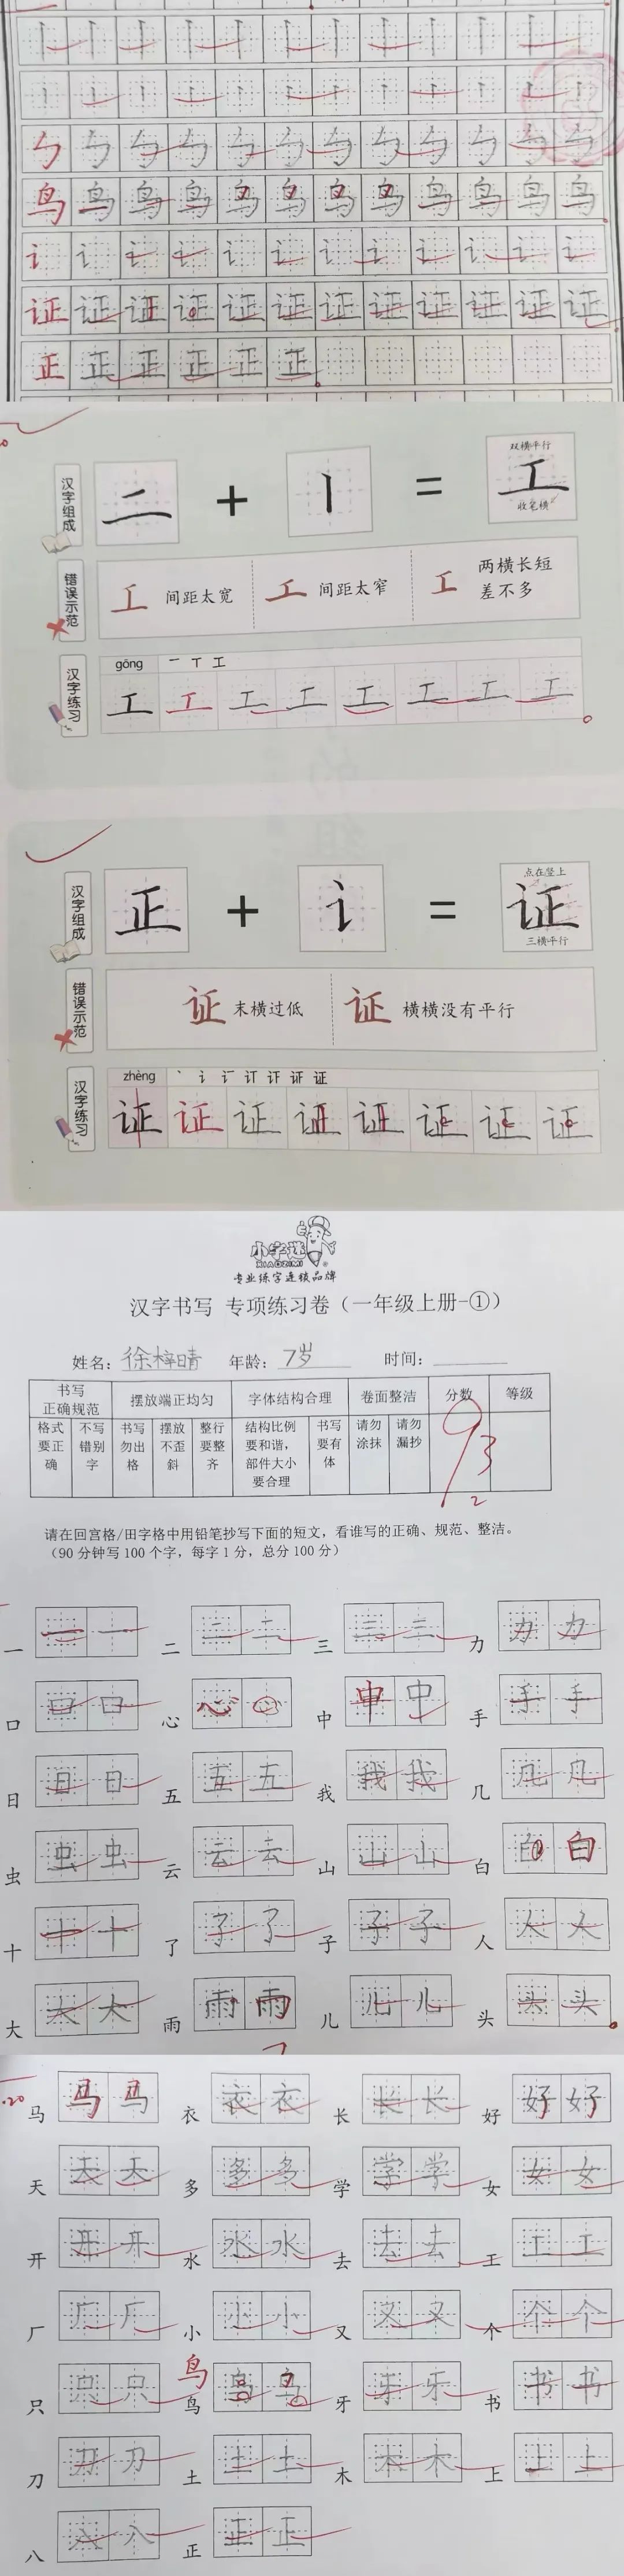 丨 丨 丨 丨 丨 丨 丨 丨 丨 丨 丨 丨
丨 丨 丨 丨 丨 丨 丨 丨 丨 丨 丨 丨
勹 勹 勹 勹 勹 勹 勹 勹 勹 勹 勹 勹
鸟 鸟 鸟 鸟 鸟 鸟 鸟 鸟 鸟 鸟 鸟 鸟
讠 讠 讠 讠 讠 讠 讠 讠 讠 讠 讠 讠
证 证 证 证 证 证 证 证 证 证 证 证
正 正 正 正 正 正
汉字组成
二 + 丨 = 工
双横平行
收笔横
错误示范
工 间距太宽 工 间距太窄 工 两横长短差不多
汉字练习
gōng 一 丅 工
工 工 工 工 工 工 工 工
汉字组成
正 + 讠 = 证
点在竖上
三横平行
错误示范
证 末横过低 证 横横没有平行
汉字练习
zhèng
证 证 证 证 证 证 证 证
小字迷
XIAOZIMI
专业练字连锁品牌
汉字书写 专项练习卷（一年级上册-①）
姓名：徐梓晴 年龄：7岁 时间：
书写正确规范 摆放端正均匀 字体结构合理 卷面整洁 分数 等级
格式要正确 不写错别字 书写勿出格 摆放不歪斜 整行要整齐 结构比例要和谐，部件大小要合理 书写要有体 请勿涂抹 请勿漏抄 93
请在回宫格/田字格中用铅笔抄写下面的短文，看谁写的正确、规范、整洁。
（90分钟写100个字，每字1分，总分100分）
一 一 一 二 二 二 三 三 三 力 力 力
口 口 口 心 心 心 中 中 中 手 手 手
日 日 日 五 五 五 我 我 我 几 几 几
虫 虫 虫 云 云 云 山 山 山 白 白 白
十 十 十 了 了 了 子 子 子 人 人 人
大 大 大 雨 雨 雨 儿 儿 儿 头 头 头
马 马 马 衣 衣 衣 长 长 长 好 好 好
天 天 天 多 多 多 学 学 学 女 女 女
开 开 开 水 水 水 去 去 去 工 工 工
厂 厂 厂 小 小 小 又 又 又 个 个 个
只 只 只 鸟 鸟 鸟 鸟 牙 牙 牙 书 书 书
刀 刀 刀 土 土 土 木 木 木 上 上 上
八 八 八 正 正 正